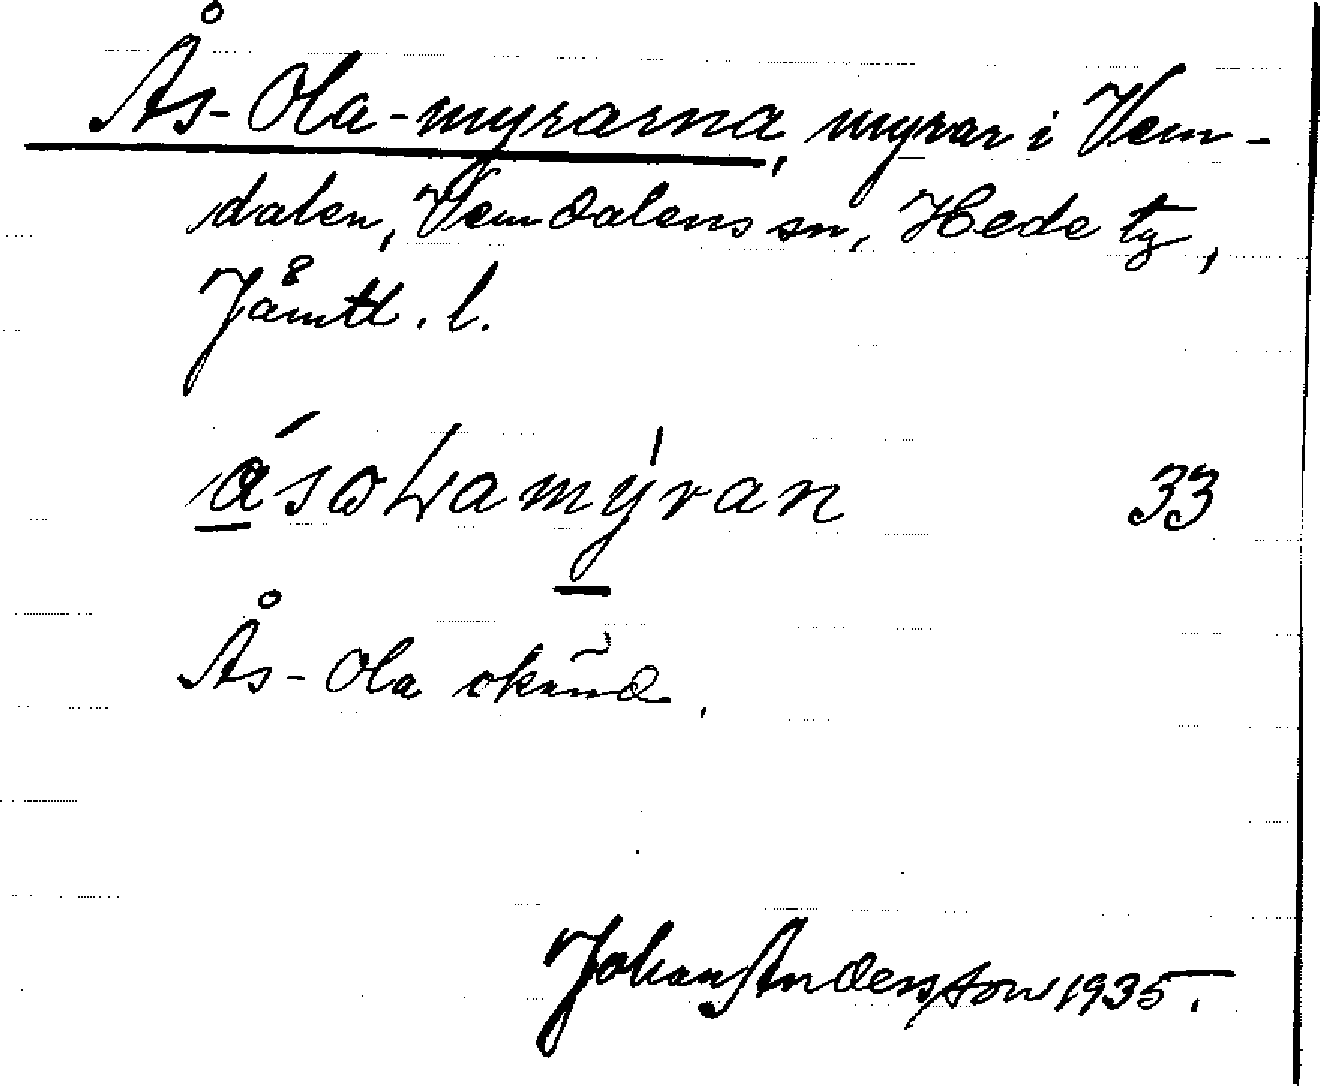 Ås-Ola-myrarna, myrar i Vem-
dalen, Vemdalens sn, Hede tg,
Jämtl. l.
ásoLamýran 33
Ås-Ola okänd.
Johan Andersson 1935.